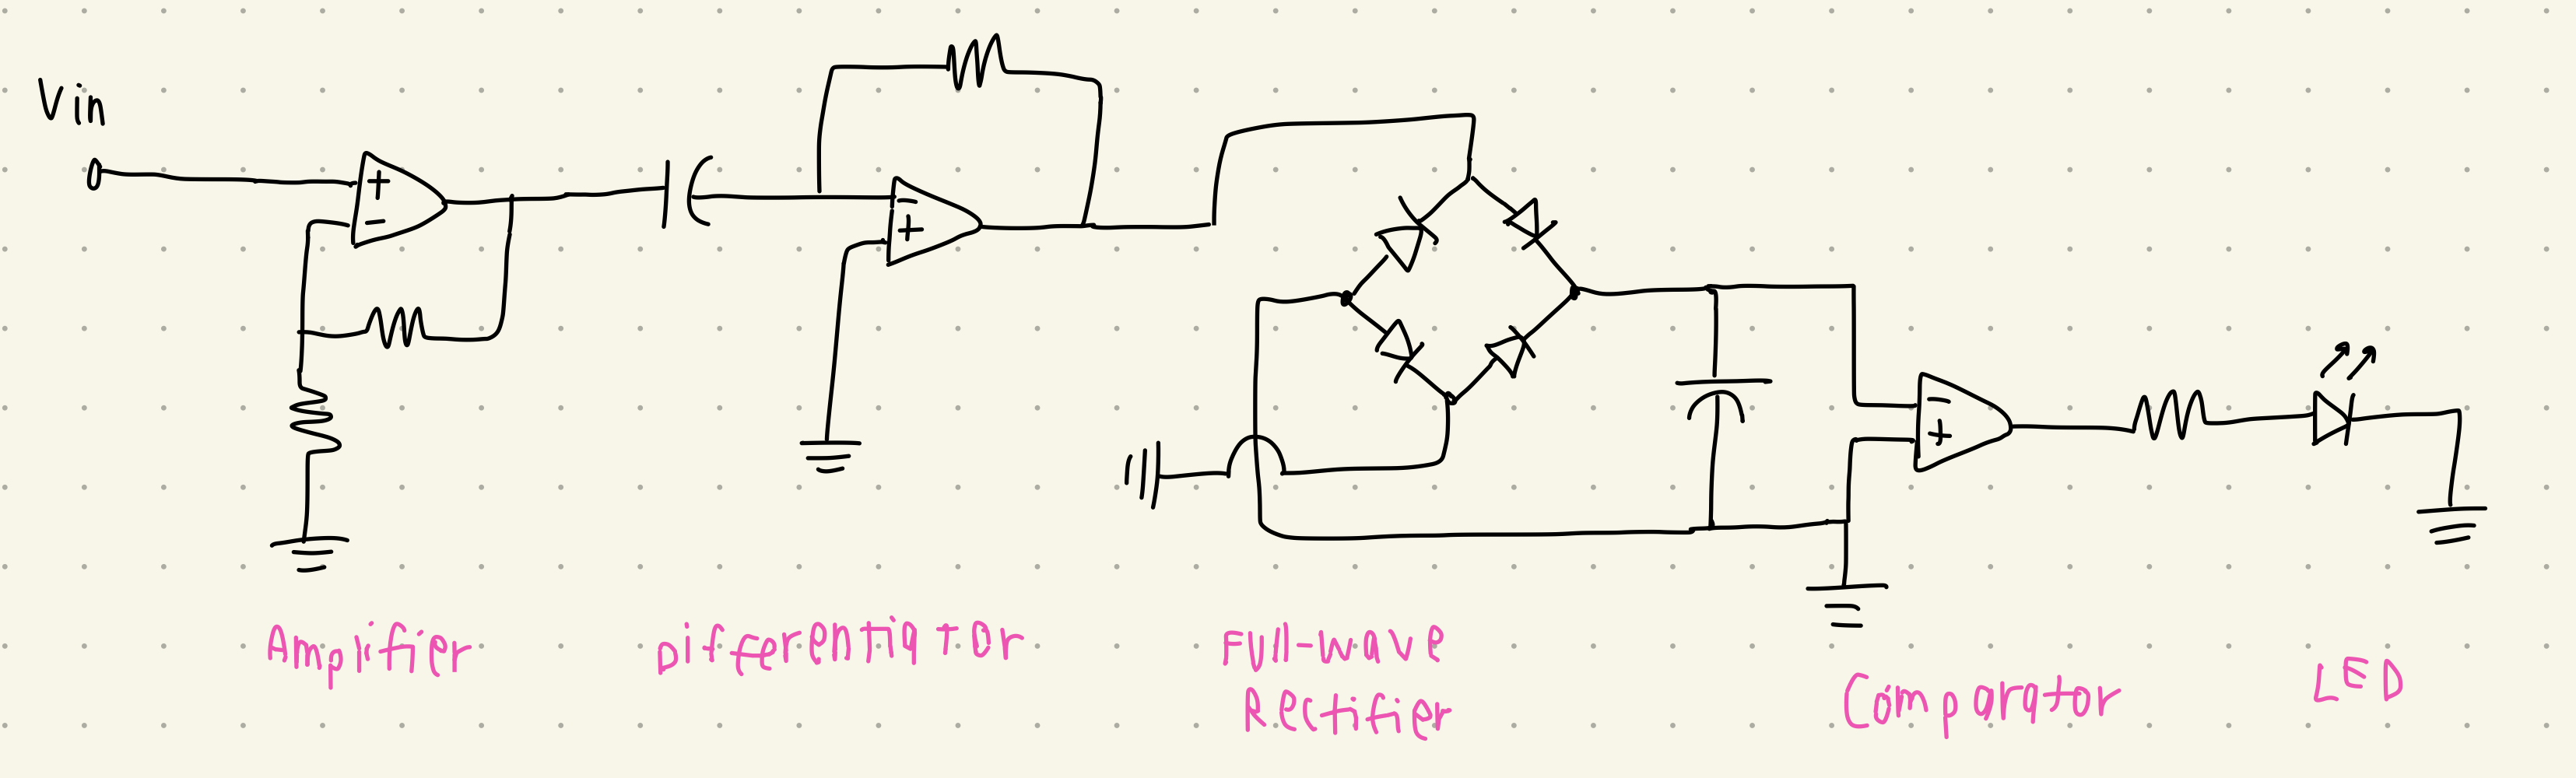 Vin
+
-
-
+
-
+
Amplifier
Differentiator
Full-wave
Rectifier
Comparator
LED